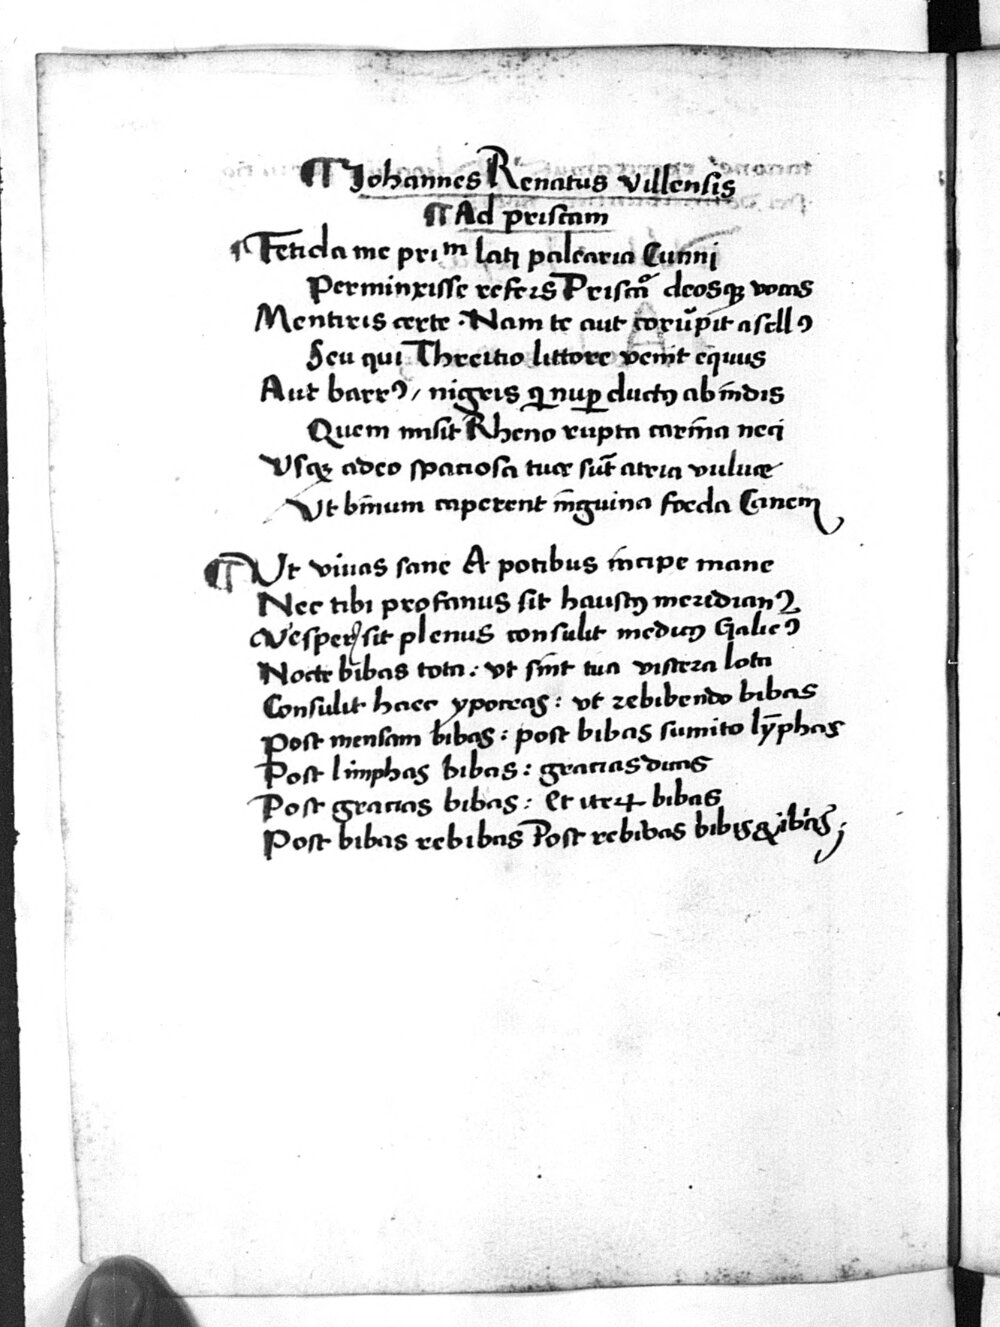 ¶ Johannes Renatus Villensis
¶ Ad priscam
¶ Fetida me pri^m lati palearia Cunni
Perminxisse refers Prisca deosqꝫ vocas
Mentiris certe. Nam te aut corūpit asellꝰ
Seu qui Threitio littore venit equus
Aut barrꝰ / nigris qui nuꝑ ductꝰ ab īdis
Quem misit Rheno rupta carīa neci
Vsqꝫ adeo spatiosa tuæ sūt atria vuluæ
Vt bīnum caperent īguina foeda Canem
¶ Vt viuas sane A potibus incipe mane
Nec tibi profanus sit haustꝰ meridianꝰ
Vesper sit plenus consulit medicꝰ Galieꝰ
Nocte bibas tota: vt sint tua viscera lota
Consulit haec ypocras: vt rebibendo bibas
Post mensam bibas: post bibas sumito lȳphas
Post limphas bibas: gracias dicas
Post gracias bibas: et iteꝝ bibas
Post bibas rebibas Post rebibas bibis & ibis;